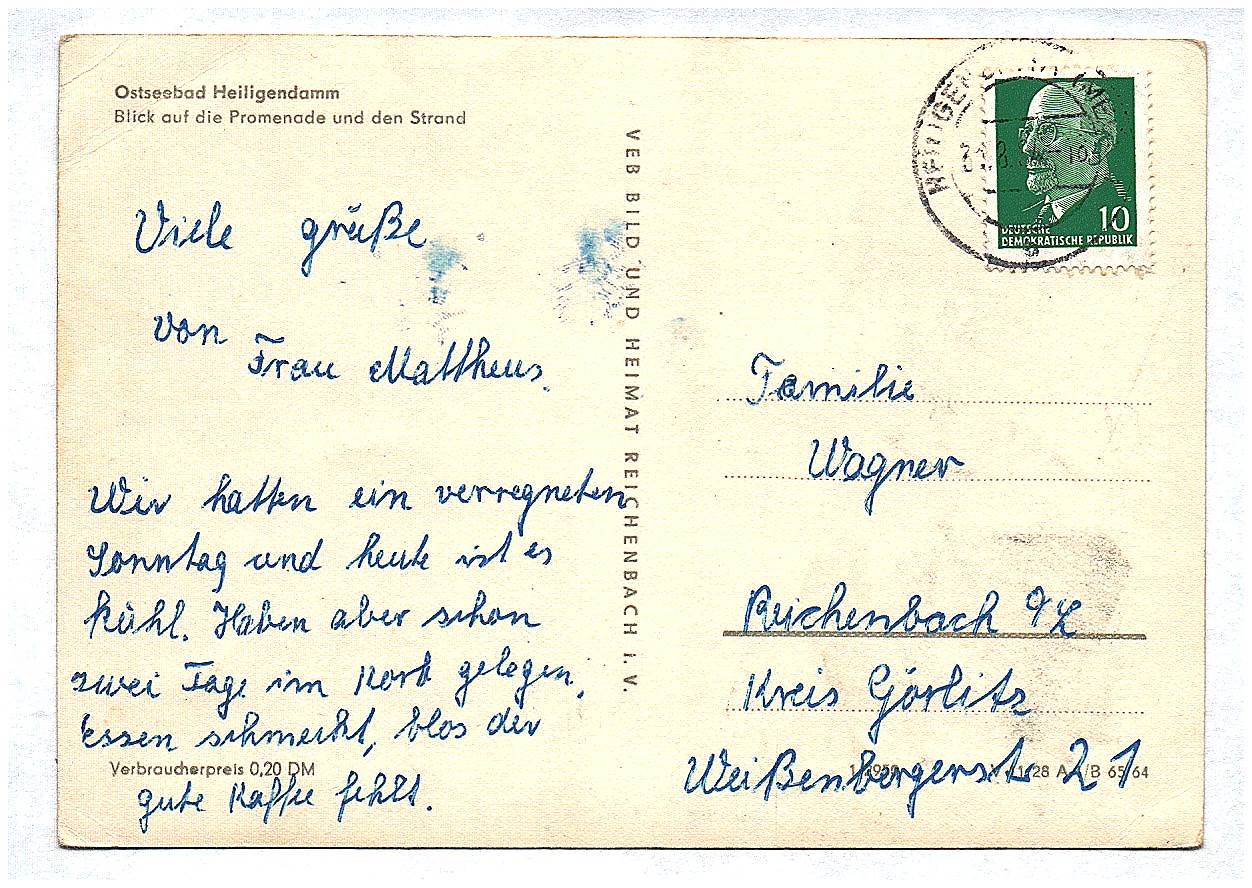 Ostseebad Heiligendamm
Blick auf die Promenade und den Strand
Viele grüße
von
Frau Mattheus.
Wir hatten ein verregneten
Sonntag und heute ist es
kühl. Haben aber schon
zwei Tage im Korb gelegen.
Essen schmeckt, blos der
gute Kaffee fehlt.
Verbraucherpreis 0,20 DM
VEB BILD UND HEIMAT REICHENBACH I. V.
10
DEUTSCHE
DEMOKRATISCHE REPUBLIK
Familie
Wagner
Reichenbach O/L
Kreis Görlitz
Weißenbergerstr 21